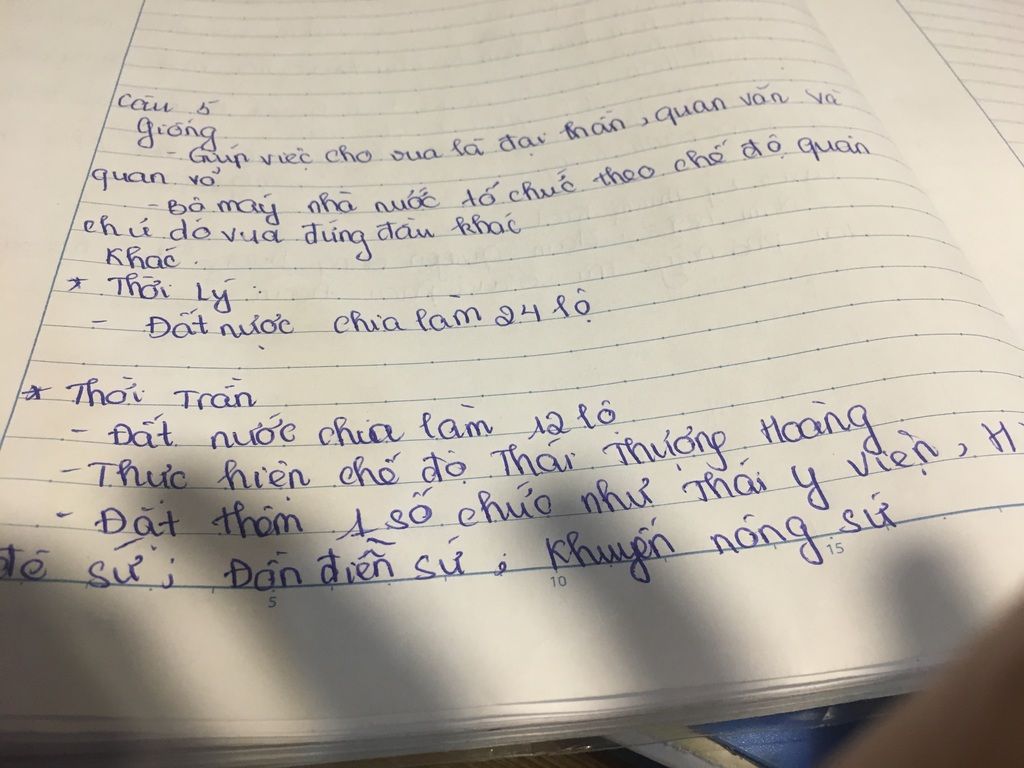 Câu 5
Giống
- Giúp việc cho vua là đại thần, quan văn và
quan võ
- Bộ máy nhà nước tổ chức theo chế độ quân
chủ do vua đứng đầu khác
Khác.
* Thời Lý:
- Đất nước chia làm 24 lộ
* Thời Trần
- Đất nước chia làm 12 lộ
- Thực hiện chế độ Thái Thượng Hoàng
- Đặt thêm 1 số chức như Thái y viện, H
đê sứ; Đồn điền sứ; Khuyến nông sứ
5 10 15